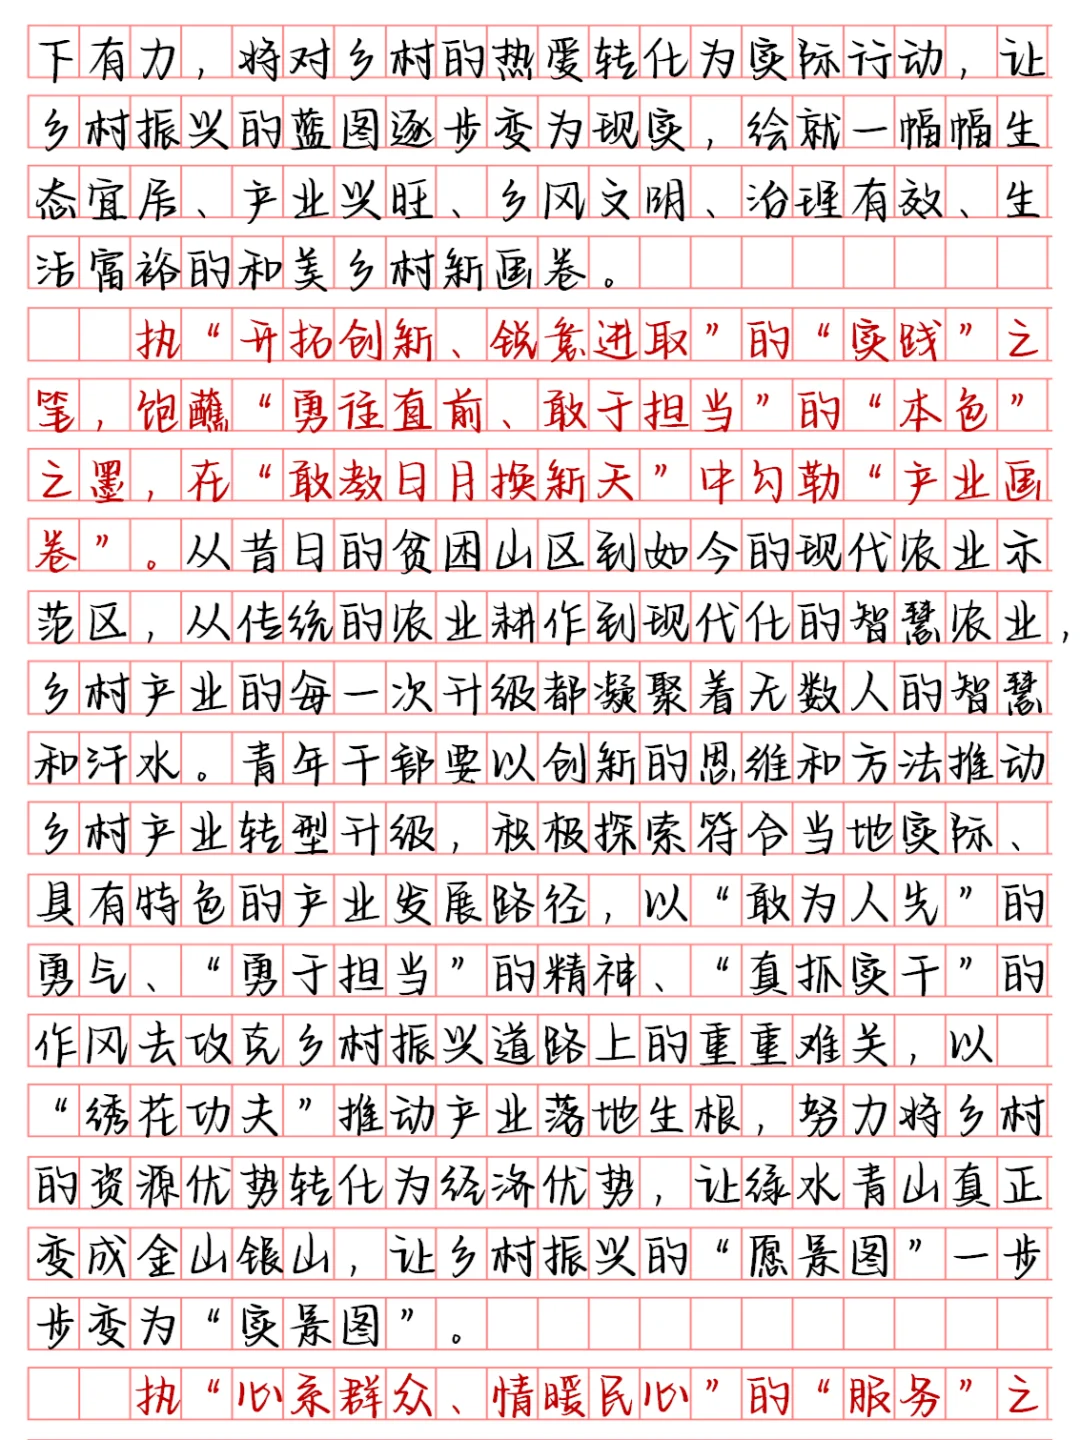 下有力，将对乡村的热爱转化为实际行动，让
乡村振兴的蓝图逐步变为现实，绘就一幅幅生
态宜居、产业兴旺、乡风文明、治理有效、生
活富裕的和美乡村新画卷。
执“开拓创新、锐意进取”的“实践”之
笔，饱蘸“勇往直前、敢于担当”的“本色”
之墨，在“敢教日月换新天”中勾勒“产业画
卷”。从昔日的贫困山区到如今的现代农业示
范区，从传统的农业耕作到现代化的智慧农业，
乡村产业的每一次升级都凝聚着无数人的智慧
和汗水。青年干部要以创新的思维和方法推动
乡村产业转型升级，积极探索符合当地实际、
具有特色的产业发展路径，以“敢为人先”的
勇气、“勇于担当”的精神、“真抓实干”的
作风去攻克乡村振兴道路上的重重难关，以
“绣花功夫”推动产业落地生根，努力将乡村
的资源优势转化为经济优势，让绿水青山真正
变成金山银山，让乡村振兴的“愿景图”一步
步变为“实景图”。
执“心系群众、情暖民心”的“服务”之